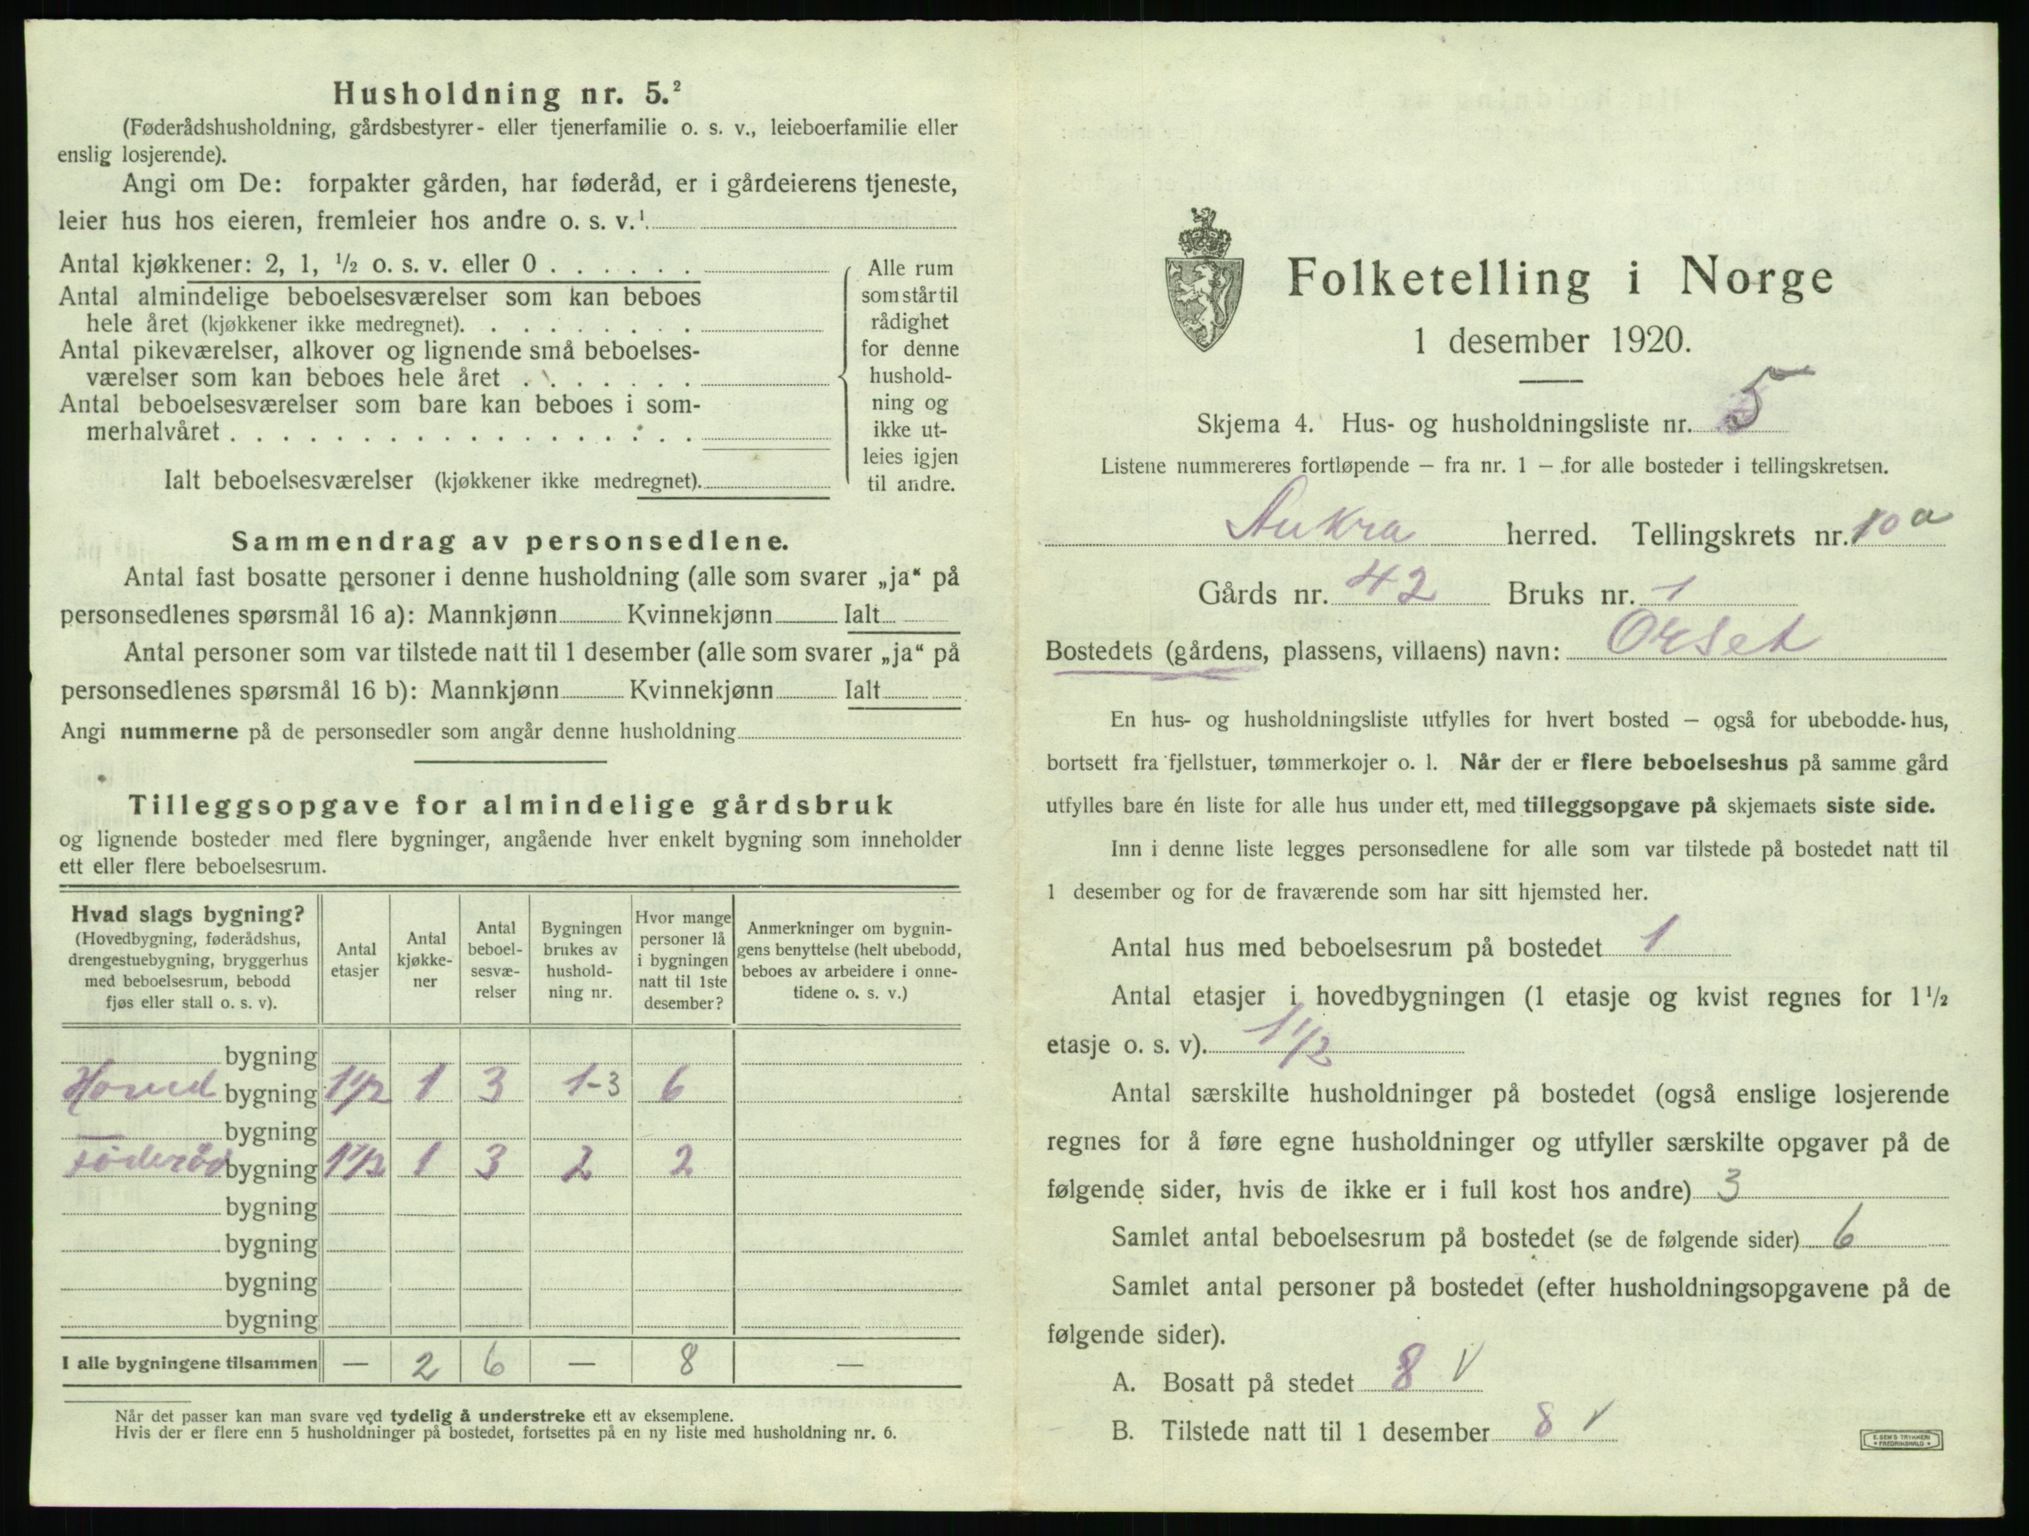 Husholdning nr. 5.²
(Føderådshusholdning, gårdsbestyrer- eller tjenerfamilie o. s. v., leieboerfamilie eller
enslig losjerende).
Angi om De: forpakter gården, har føderåd, er i gårdeierens tjeneste,
leier hus hos eieren, fremleier hos andre o. s. v.¹
Antal kjøkkener: 2, 1, ½ o. s. v. eller 0 . . . . . .
Antal almindelige beboelsesværelser som kan beboes
hele året (kjøkkener ikke medregnet). . . . . . . . .
Antal pikeværelser, alkover og lignende små beboelses-
værelser som kan beboes hele året . . . . . . .
Antal beboelsesværelser som bare kan beboes i som-
merhalvåret . . . . . . . . . . . . . . . . . .
Ialt beboelsesværelser (kjøkkener ikke medregnet).
Alle rum
som står til
rådighet
for denne
hushold-
ning og
ikke ut-
leies igjen
til andre.
Sammendrag av personsedlene.
Antal fast bosatte personer i denne husholdning (alle som svarer „ja“ på
personsedlenes spørsmål 16 a): Mannkjønn Kvinnekjønn Ialt
Antal personer som var tilstede natt til 1 desember (alle som svarer „ja“ på
personsedlenes spørsmål 16 b): Mannkjønn Kvinnekjønn Ialt
Angi nummerne på de personsedler som angår denne husholdning
Tilleggsopgave for almindelige gårdsbruk
og lignende bosteder med flere bygninger, angående hver enkelt bygning som inneholder
ett eller flere beboelsesrum.
Hvad slags bygning?
(Hovedbygning, føderådshus,
drengestuebygning, bryggerhus
med beboelsesrum, bebodd
fjøs eller stall o. s. v).
Antal
etasjer
Antal
kjøkke-
ner
Antal
beboel-
sesvæ-
relser
Bygningen
brukes av
hushold-
ning nr.
Hvor mange
personer lå
i bygningen
natt til 1ste
desember?
Anmerkninger om bygnin-
gens benyttelse (helt ubebodd,
beboes av arbeidere i onne-
tidene o. s. v.)
bygning
Hoved bygning 1½ 1 3 1-3 6
bygning
Föderåd bygning 1½ 1 3 2 2
bygning
bygning
bygning
bygning
I alle bygningene tilsammen — 2 6 — 8 —
Når det passer kan man svare ved tydelig å understreke ett av eksemplene.
Hvis der er flere enn 5 husholdninger på bostedet, fortsettes på en ny liste med husholdning nr. 6.
Folketelling i Norge
1 desember 1920.
Skjema 4. Hus- og husholdningsliste nr. 5
Listene nummereres fortløpende – fra nr. 1 – for alle bosteder i tellingskretsen.
Aukra herred. Tellingskrets nr. 10 a
Gårds nr. 42 Bruks nr. 1
Bostedets (gårdens, plassens, villaens) navn: Orset
En hus- og husholdningsliste utfylles for hvert bosted – også for ubebodde hus,
bortsett fra fjellstuer, tømmerkojer o. l. Når der er flere beboelseshus på samme gård
utfylles bare én liste for alle hus under ett, med tilleggsopgave på skjemaets siste side.
Inn i denne liste legges personsedlene for alle som var tilstede på bostedet natt til
1 desember og for de fraværende som har sitt hjemsted her.
Antal hus med beboelsesrum på bostedet 1
Antal etasjer i hovedbygningen (1 etasje og kvist regnes for 1½
etasje o. s. v). 1½
Antal særskilte husholdninger på bostedet (også enslige losjerende
regnes for å føre egne husholdninger og utfyller særskilte opgaver på de
følgende sider, hvis de ikke er i full kost hos andre) 3
Samlet antal beboelsesrum på bostedet (se de følgende sider) 6
Samlet antal personer på bostedet (efter husholdningsopgavene på de
følgende sider).
A. Bosatt på stedet 8 V
B. Tilstede natt til 1 desember 8 V
E. SEM'S TRYKKERI
FREDRIKSHALD